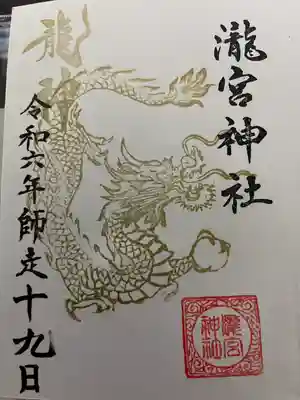 瀧宮神社
龍神
令和六年師走十九日
瀧宮神社